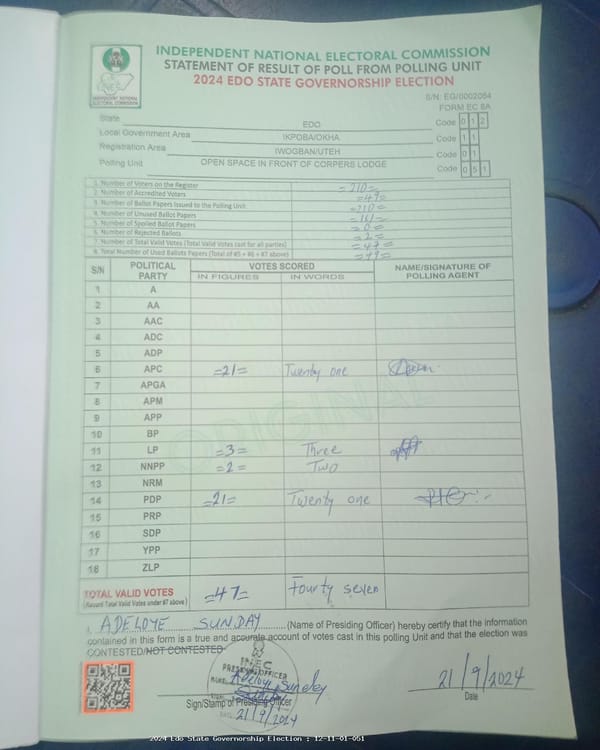 INDEPENDENT NATIONAL ELECTORAL COMMISSION
STATEMENT OF RESULT OF POLL FROM POLLING UNIT
2024 EDO STATE GOVERNORSHIP ELECTION
S/N: EG/0002064
FORM EC 8A
State EDO Code 0 1 2
Local Government Area IKPOBA/OKHA Code 1 1
Registration Area IWOGBAN/UTEH Code 0 1
Polling Unit OPEN SPACE IN FRONT OF CORPERS LODGE Code 0 5 1
1. Number of Voters on the Register =210=
2. Number of Accredited Voters =49=
3. Number of Ballot Papers Issued to the Polling Unit =210=
4. Number of Unused Ballot Papers =161=
5. Number of Spoiled Ballot Papers =0=
6. Number of Rejected Ballots =2=
7. Number of Total Valid Votes (Total Valid Votes cast for all parties) =47=
8. Total Number of Used Ballots Papers (Total of #5 + #6 + #7 above) =49=
S/N POLITICAL PARTY VOTES SCORED NAME/SIGNATURE OF POLLING AGENT
IN FIGURES IN WORDS
1 A
2 AA
3 AAC
4 ADC
5 ADP
6 APC =21= Twenty one
7 APGA
8 APM
9 APP
10 BP
11 LP =3= Three
12 NNPP =2= Two
13 NRM
14 PDP =21= Twenty one
15 PRP
16 SDP
17 YPP
18 ZLP
ORIGINAL
TOTAL VALID VOTES =47= Fourty seven
(Record Total Valid Votes under #7 above)
I, ADELOYE SUNDAY (Name of Presiding Officer) hereby certify that the information
contained in this form is a true and accurate account of votes cast in this polling Unit and that the election was
CONTESTED/NOT CONTESTED.
INEC
PRESIDING OFFICER
Adeloye Sunday
21/9/2024
Sign/Stamp of Presiding Officer
21/9/2024
Date
2024 Edo State Governorship Election : 12-11-01-051